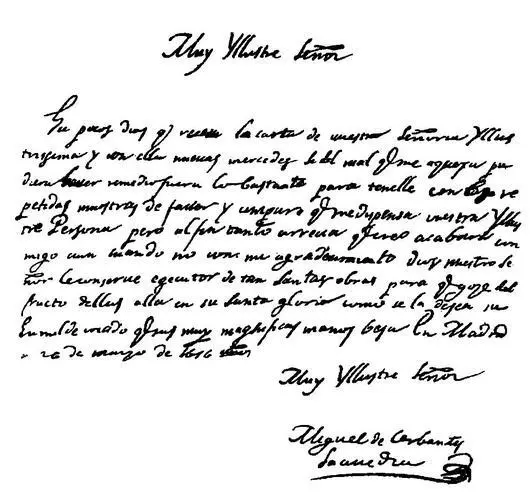 Muy Yllustre Señor
Ha pocos dias q̃ receui la carta de vuestra Señoria Yllus
trissima y con ella nuevas mercedes si del mal q̃ me aquexa pu
diera hauer remedio fuera lo bastante para tenelle con las re
petidas muestras de fauor y amparo q̃ me dispensa vuestra Yllus
tre Persona pero al fin tanto arrecia q̃ creo acabara con
migo aun cuando no con mi agradecimiento Dios nuestro Se
ñor le conserue egecutor de tan Santas obras para q̃ goze del
fructo dellas alla en su santa gloria como se la desea su
humilde criado q̃ sus muy magnificas manos besa En Madrid
a 26 de marzo de 1616 años
Muy Yllustre Señor
Miguel de Cerbantes
Saauedra